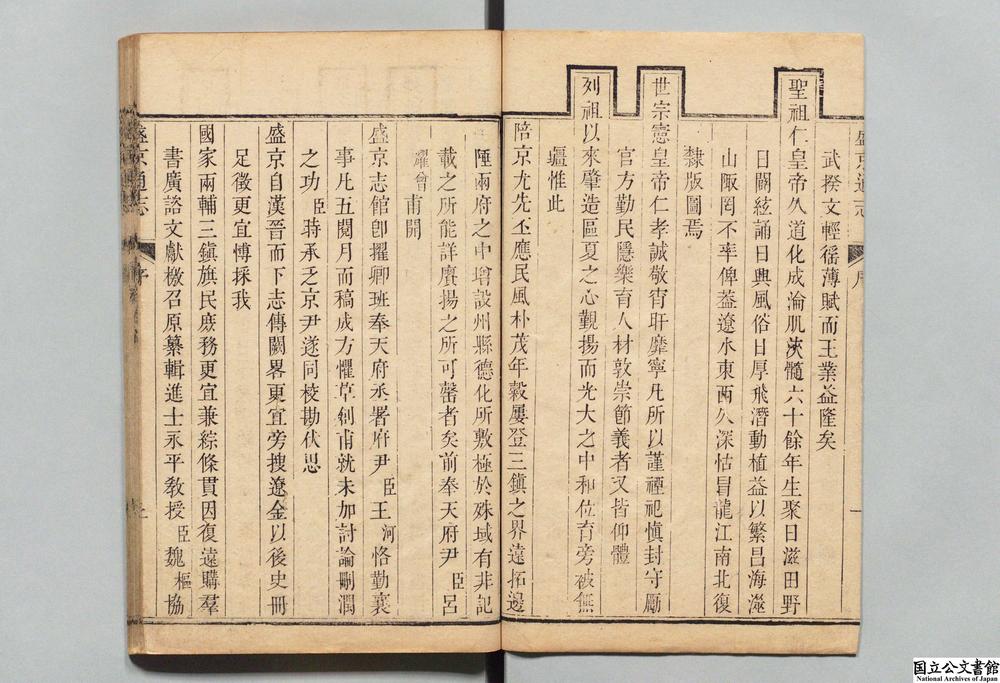 武揆文輕徭薄賦而王業益隆矣
聖祖仁皇帝久道化成淪肌浹髓六十餘年生聚日滋田野
日闢絃誦日興風俗日厚飛潛動植益以繁昌海澨
山陬罔不率俾葢遼水東西久深怙冒龍江南北復
隸版圖焉
世宗憲皇帝仁孝誠敬宵旰靡寧凡所以謹禋祀慎封守勵
官方勤民隱樂育人材敦崇節義者又皆仰體
列祖以來肇造區夏之心覲揚而光大之中和位育旁被無
疆惟此
陪京尤先丕應民風朴茂年穀屢登三鎮之界遠拓邊
陲兩府之中增設州縣德化所敷極於殊域有非記
載之所能詳賡揚之所可罄者矣前奉天府尹臣呂
耀曾甫開
盛京志館卽擢卿班奉天府丞署府尹臣王河恪勤襄
事凡五閱月而稿成方懼草創甫就未加討論刪潤
之功臣時承乏京尹遂同校勘伏思
盛京自漢晉而下志傳闕畧更宜旁搜遼金以後史冊
足徵更宜愽採我
國家兩輔三鎮旗民庶務更宜兼綜條貫因復遠購羣
書廣諮文獻檄召原纂輯進士永平敎授臣魏樞協
盛京通志
序
盛京通志
序
一
国立公文書館
National Archives of Japan